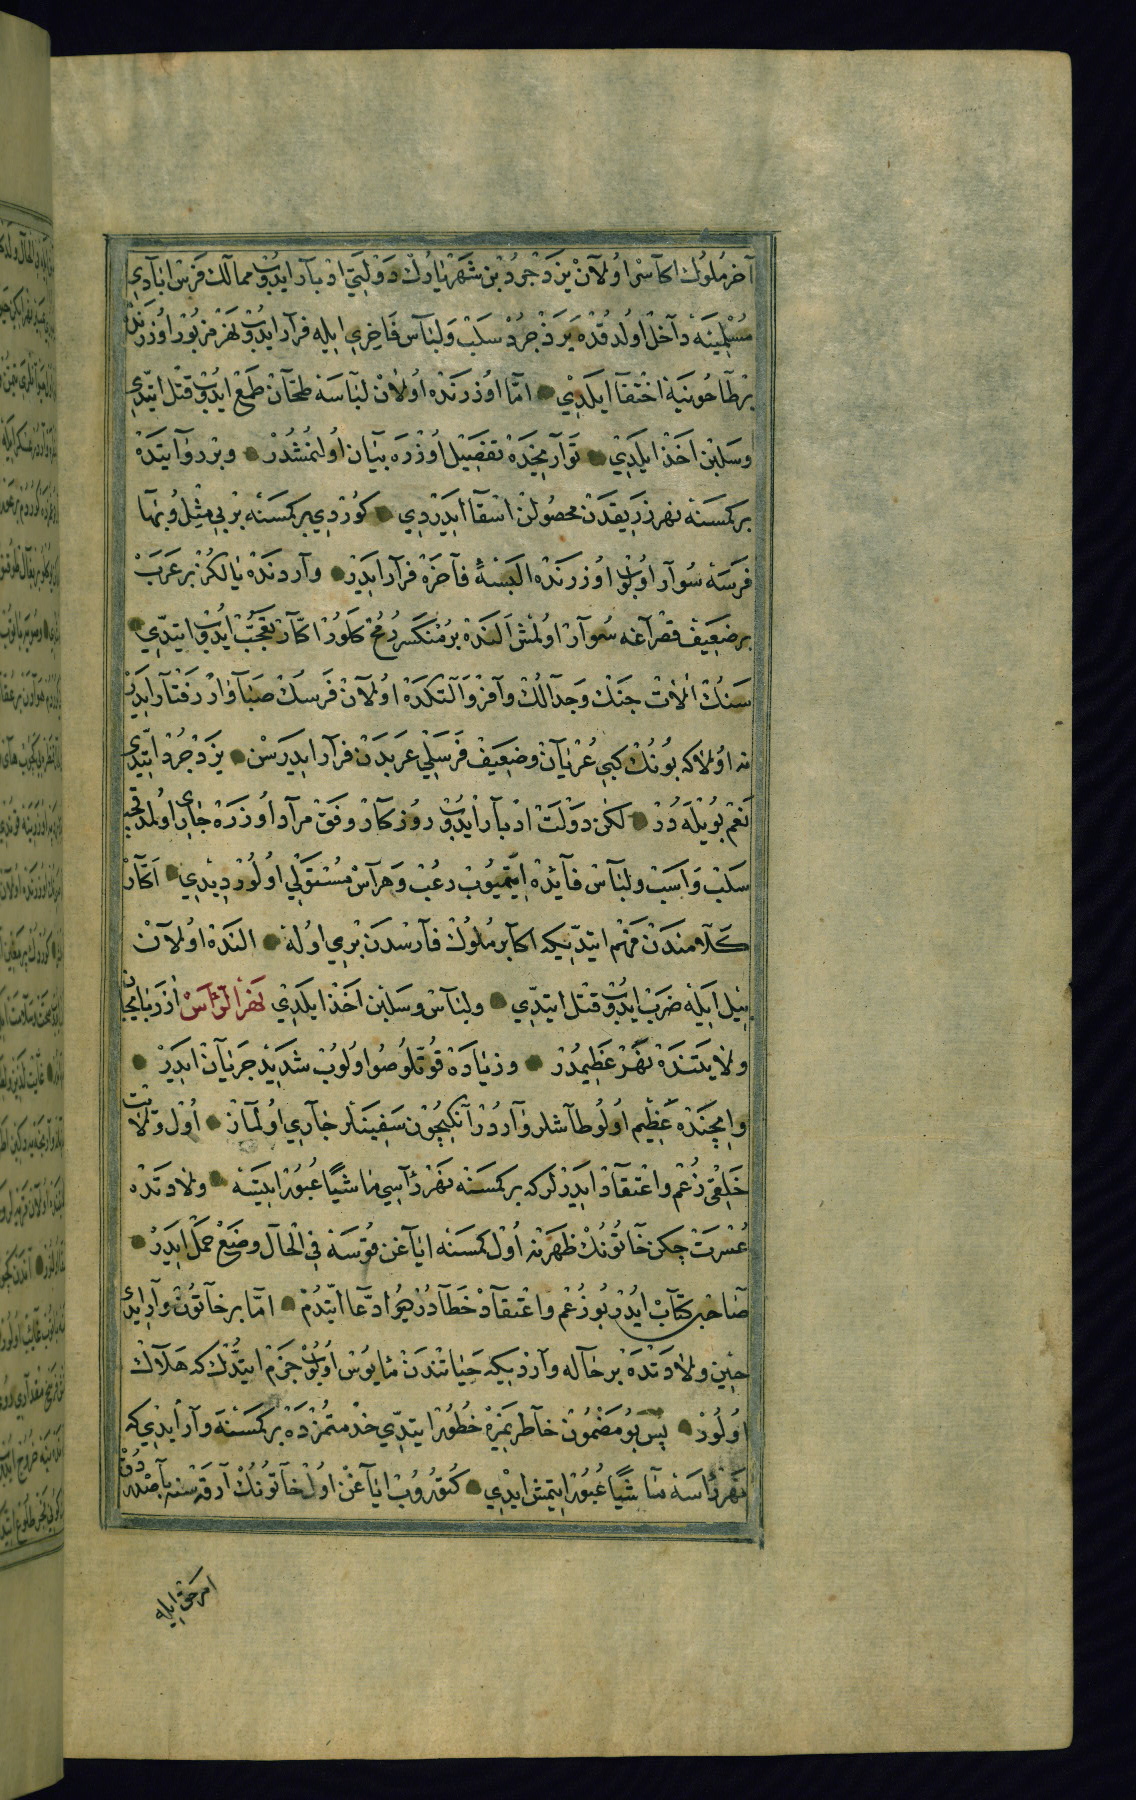 آخر ملوك اكاسره اولان يزدجرد بن شهريارك دولتى ادبار ايدوب ممالك فرس ايادئ
مسلمينه داخل اولدقده يزدجرد سلب ولباس فاخرى ايله فرار ايدوب نهر مزبور اوزرنده
بر طاحونيه اختفا ايلدى اما اوزرنده اولان لباسه طحان طمع ايدوب قتل ايتدى
وسلبن اخذ ايلدى تواريخده تفصيل اوزره بيان اولنمشدر وبر روايتده
بر كمسنه نهر زريقدن محصولن اسقا ايدردى كوردى بر كمسنه بر بى مثل وبها
فرسه سوار اولوب اوزرنده البسهٔ فاخره فرار ايدر واردنده يالكز بر عرب
بر ضعيف قصراغه سوار اولمش النده بر منكسر رمح كلور اكار تعجب ايدوب ايتدى
سنك الات جنك وجدالك وافر والتكده اولان فرسك صباوار رفتار ايدر
نه اولا كه بونك كبى عريان وضعيف فرسلى عربدن فرار ايدرسن يزدجرد ايتدى
نعم بويله در لكن دولت ادبار ايدوب روزكار وفق مراد اوزره جارى اولمدقجه
سلب واسب ولباس فائده ايتميوب رعب وهراس مستولى اولور ديدى اكار
كلامندن فهم ايتديكه اكابر ملوك فارسدن برى اوله النده اولان
بيل ايله ضرب ايدوب قتل ايتدى ولباس وسلبن اخذ ايلدى نهر الراس اذربايجان
ولايتنده نهر عظيمدر وزياده قوتلو صو اولوب شديد جريان ايدر
وايچنده عظيم اولو طاشلر واردر آنكيچون سفينه لر جارى اولماز اول ولايت
خلقى زعم واعتقاد ايدرلر كه بر كمسنه نهر راسى ماشيا عبور ايتسه ولادتده
عسرت چكن خاتونك ظهرنه اول كمسنه اياغن قوسه فى الحال وضع حمل ايدر
صاحب كتاب ايدر بو زعم واعتقاد خطادر ديو ادعا ايتدم اما بر خاتون وار ايدى
حين ولادتده بر حاله واردىكه حياتندن مأيوس اولوب جزم ايتدك كه هلاك
اولور پس بو مضمون خاطريمزه خطور ايتدى خدمتمزده بر كمسنه وار ايدى كه
نهر راسه ماشيا عبور ايتمش ايدى كتوروب اياغن اول خاتونك ارقه سنه باصدردق
امر حق ايله